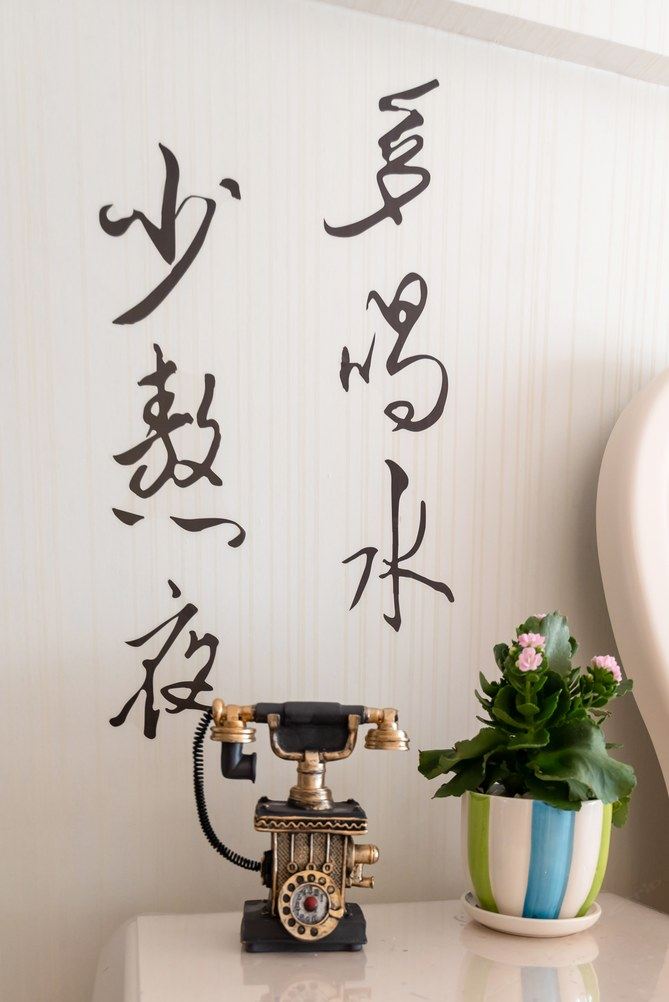 多喝水
少熬夜